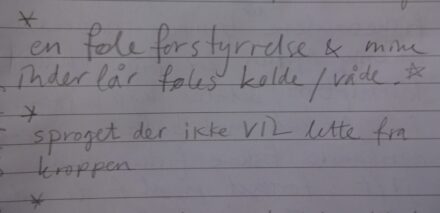 *
en føleforstyrrelse & mine
inderlår føles kolde/våde. ☆
*
sproget der ikke VIL lette fra
kroppen
*